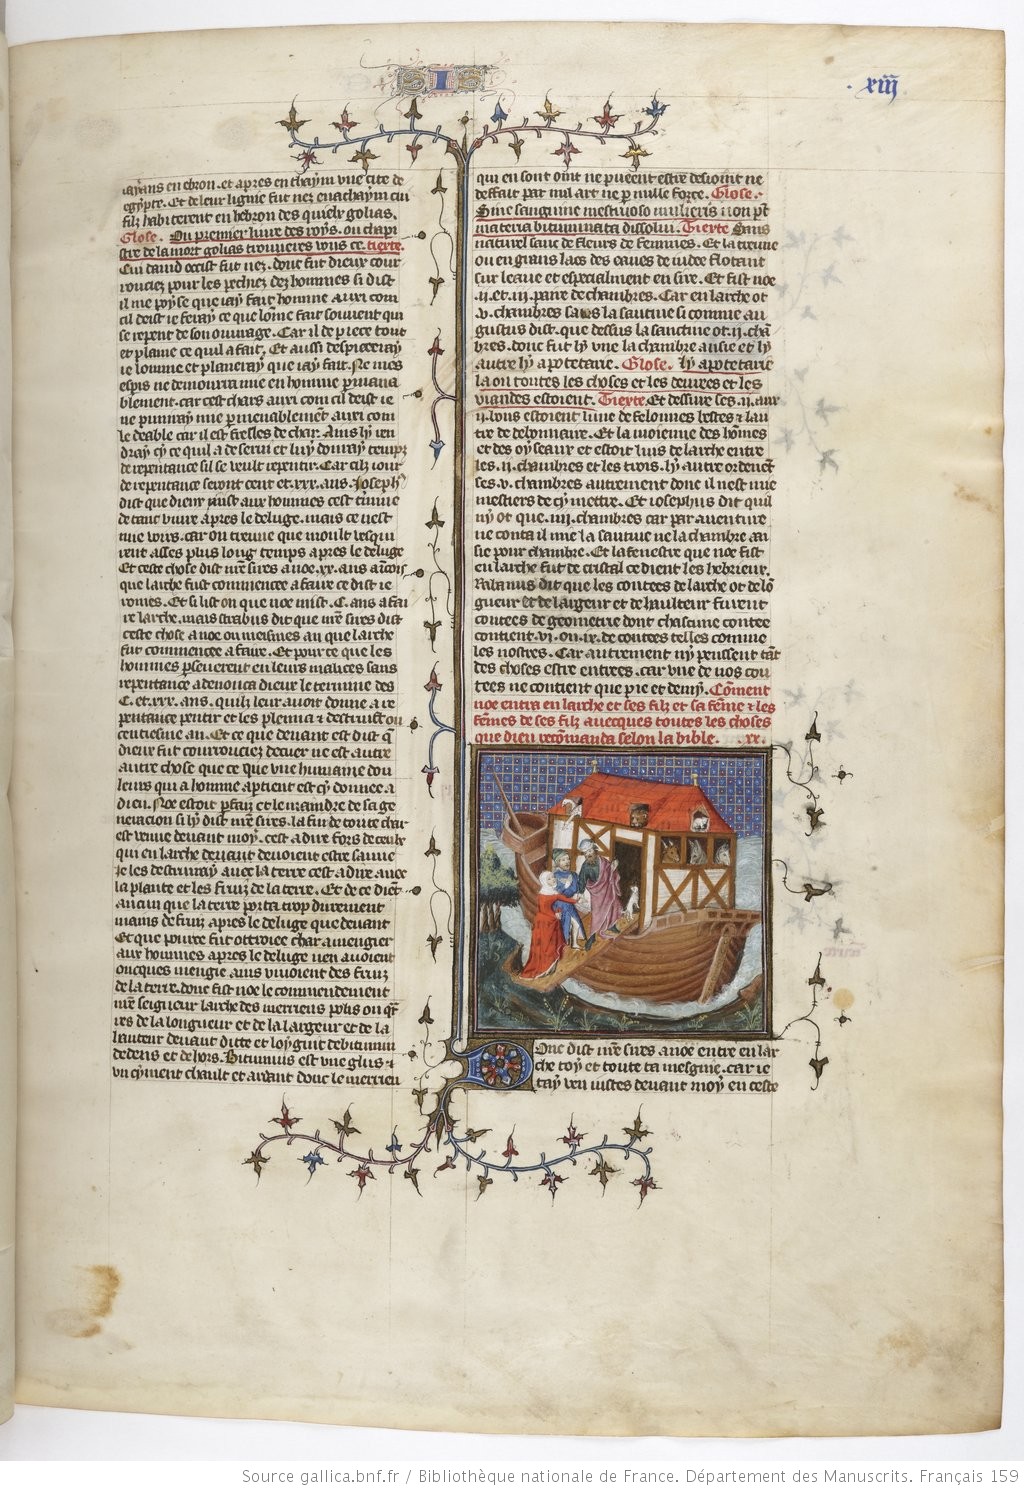 SIS
.xiiij.
iayans en ebron. et apres en thaym une cite de
egypte. Et de leur lignie fut nez enachaym cui
filz habiterent en hebron des quielx golias.
Glose. Ou premier livre des roys. ou chapi
stre de la mort golias trouveres vous ce. tiexte.
Cui david occist fut nez. donc fut dieux cour
rouciez pour les pechiez dez hommes si dist
il me poyse que iay fait homme auxi com
cil deist ie feray ce que lome fait souvent qui
se repent de son ouvrage. Car il depiece tout
et plaine ce quil a fait. Et aussi despiceray
ie lomme et planeray que iay fait. Ne mes
espis ne demourra mie en homme pmana
blement. car cest chars auxi com cil deist ie
ne punray mie pmenablement auxi com
le deable car il est fresles de char. Ains ly ren
dray cy ce quil a deservi et luy donray temps
de repentance sil se veult repentir. Car cilz iour
de repentance seront cent et .xxx. ans. Josephs
dist que dieux mist aux hommes cest timme
de tant vivre apres le deluge. mais ce nest
mie voirs. car on treuve que moult vesqui
rent asses plus long temps apres le deluge
Et ceste chose dist nre sires a noe .xx. ans aincois
que larche fust commencee a faire ce dist ie
ronies. Et si list on que noe mist .C. ans a fai
re larche. mais strabus dit que nre sires dist
ceste chose a noe ou meismes an que larche
fut commencee a faire. Et pour ce que les
hommes pseverent en leurs malices sans
repentance adenonca dieux le termine des
.C. et .xxx. ans. quilz leur avoit donne a re
pentance pentir et les plenna &amp; destruist ou
centiesme an. Et ce que devant est dist q
dieux fut courrouciez de cuer ne est autre
autre chose que ce que une humaine dou
leurs qui a homme aptient est cy donnee a
dieu. Noe estoit pfaiz et le maindre de sa ge
neracion si ly dist nre sires. la fin de toute char
est venue devant moy. cest a dire fors de ceulx
qui en larche devant devoient estre sauve
ie les destruiray avec la terre cest a dire avec
la plante et les fruiz de la terre. Et de ce dient
aucun que la terre porta trop durement
mains de fruiz apres le deluge que devant
Et que pource fut ottroiee char a mengier
aux hommes apres le deluge nen avoient
oncques mengie ains vivoient des fruiz
de la terre. donc fist noe le commendement
nre seigneur larche des merriens polis ou qr
res de la longueur et de la largeur et de la
hauteur devant ditte et loygnit de bitumn
dedens et dehors. Bitumus est une glus &amp;
un cyment chault et ardant dont le merrien
qui en sont oint ne puent estre desioint ne
deffait par nul art ne p nulle force. Glose.
Sine sanguine mestruoso mulieris non pt
materia bituminata dissolvi. Tiexte Sans
naturel sanc de fleurs de femmes. Et la treuve
on en grans lacs des eaues de iudee flotant
sur leaue et especialment en sire. Et fist noe
.ii. et .iii. paire de chambres. Car en larche ot
.v. chambres sans la santine si comme au
gustus dist. que dessus la sanctine ot .ii. cha
bres. donc fut ly une la chambre aisie et ly
autre ly apotetarie. Glose. ly apotetarie
la ou toutes les choses et les deures et les
viandes estoient. Tiexte. Et dessure ses .ii. aux
.ii. lons estoient lune de felonnes bestes &amp; lau
tre de debonnaire. Et la moienne des homes
et des oyseaux et estoit luis de larche entre
les .ii. chambres et les trois. ly autre ordenent
ses .v. chambres autrement donc il nest mie
mestiers de cy mettre. Et iosephus dit quil
ny ot que .iiii. chambres car par aventure
ne conta il mie la santine ne la chambre ai
sie pour chambre. Et la fenestre que noe fist
en larche fut de cristal ce dient les hebrieux.
Rabanus dit que les coutees de larche ot de lo
gueur et de largeur et de haulteur furent
coutees de geometrie dont chascune coutee
contient .vi. ou .ix. de coutees telles comme
les nostres. Car autrement ny peussent tant
des choses estre entrees. car une de nos cou
tees ne contient que pie et demy. Coment
noe entra en larche et ses filz et sa feme &amp; les
femes de ses filz avecques toutes les choses
que dieu recomanda selon la bible. .xx.
Donc dist nre sires a noe entre en lar
che toy et toute ta mesgnie. car ie
tay veu iustes devant moy en ceste
Source gallica.bnf.fr / Bibliothèque nationale de France. Département des Manuscrits. Français 159